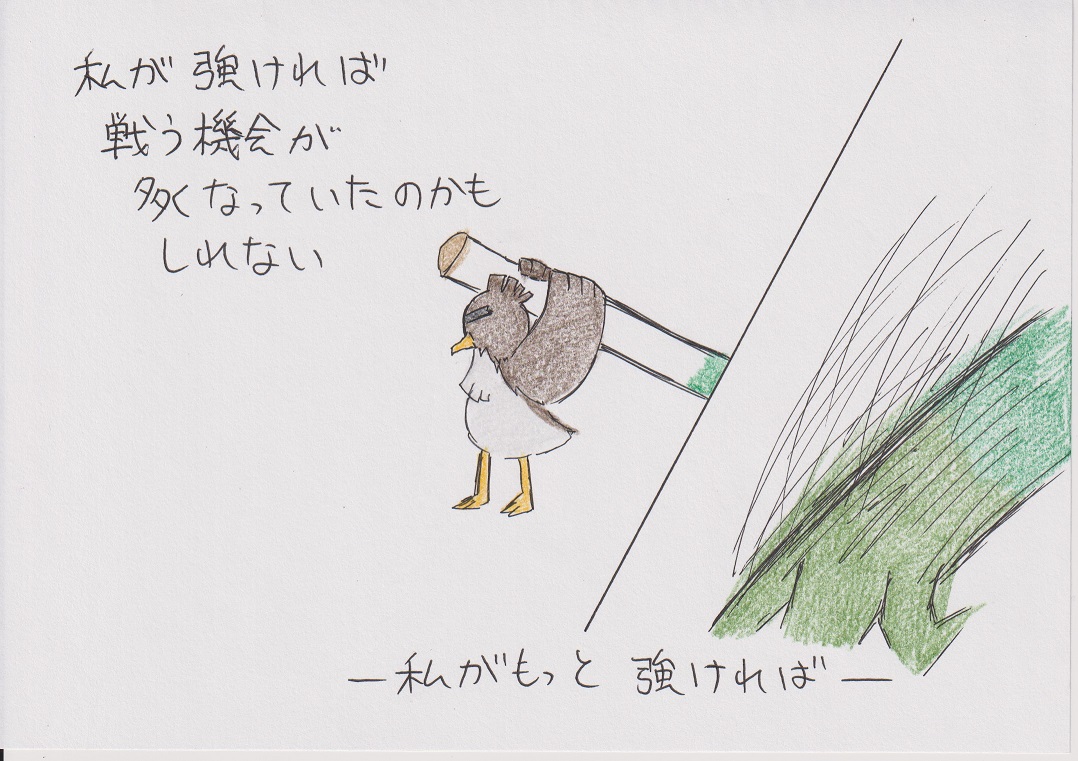 私が強ければ
戦う機会が
多くなっていたのかも
しれない
―私がもっと 強ければ―